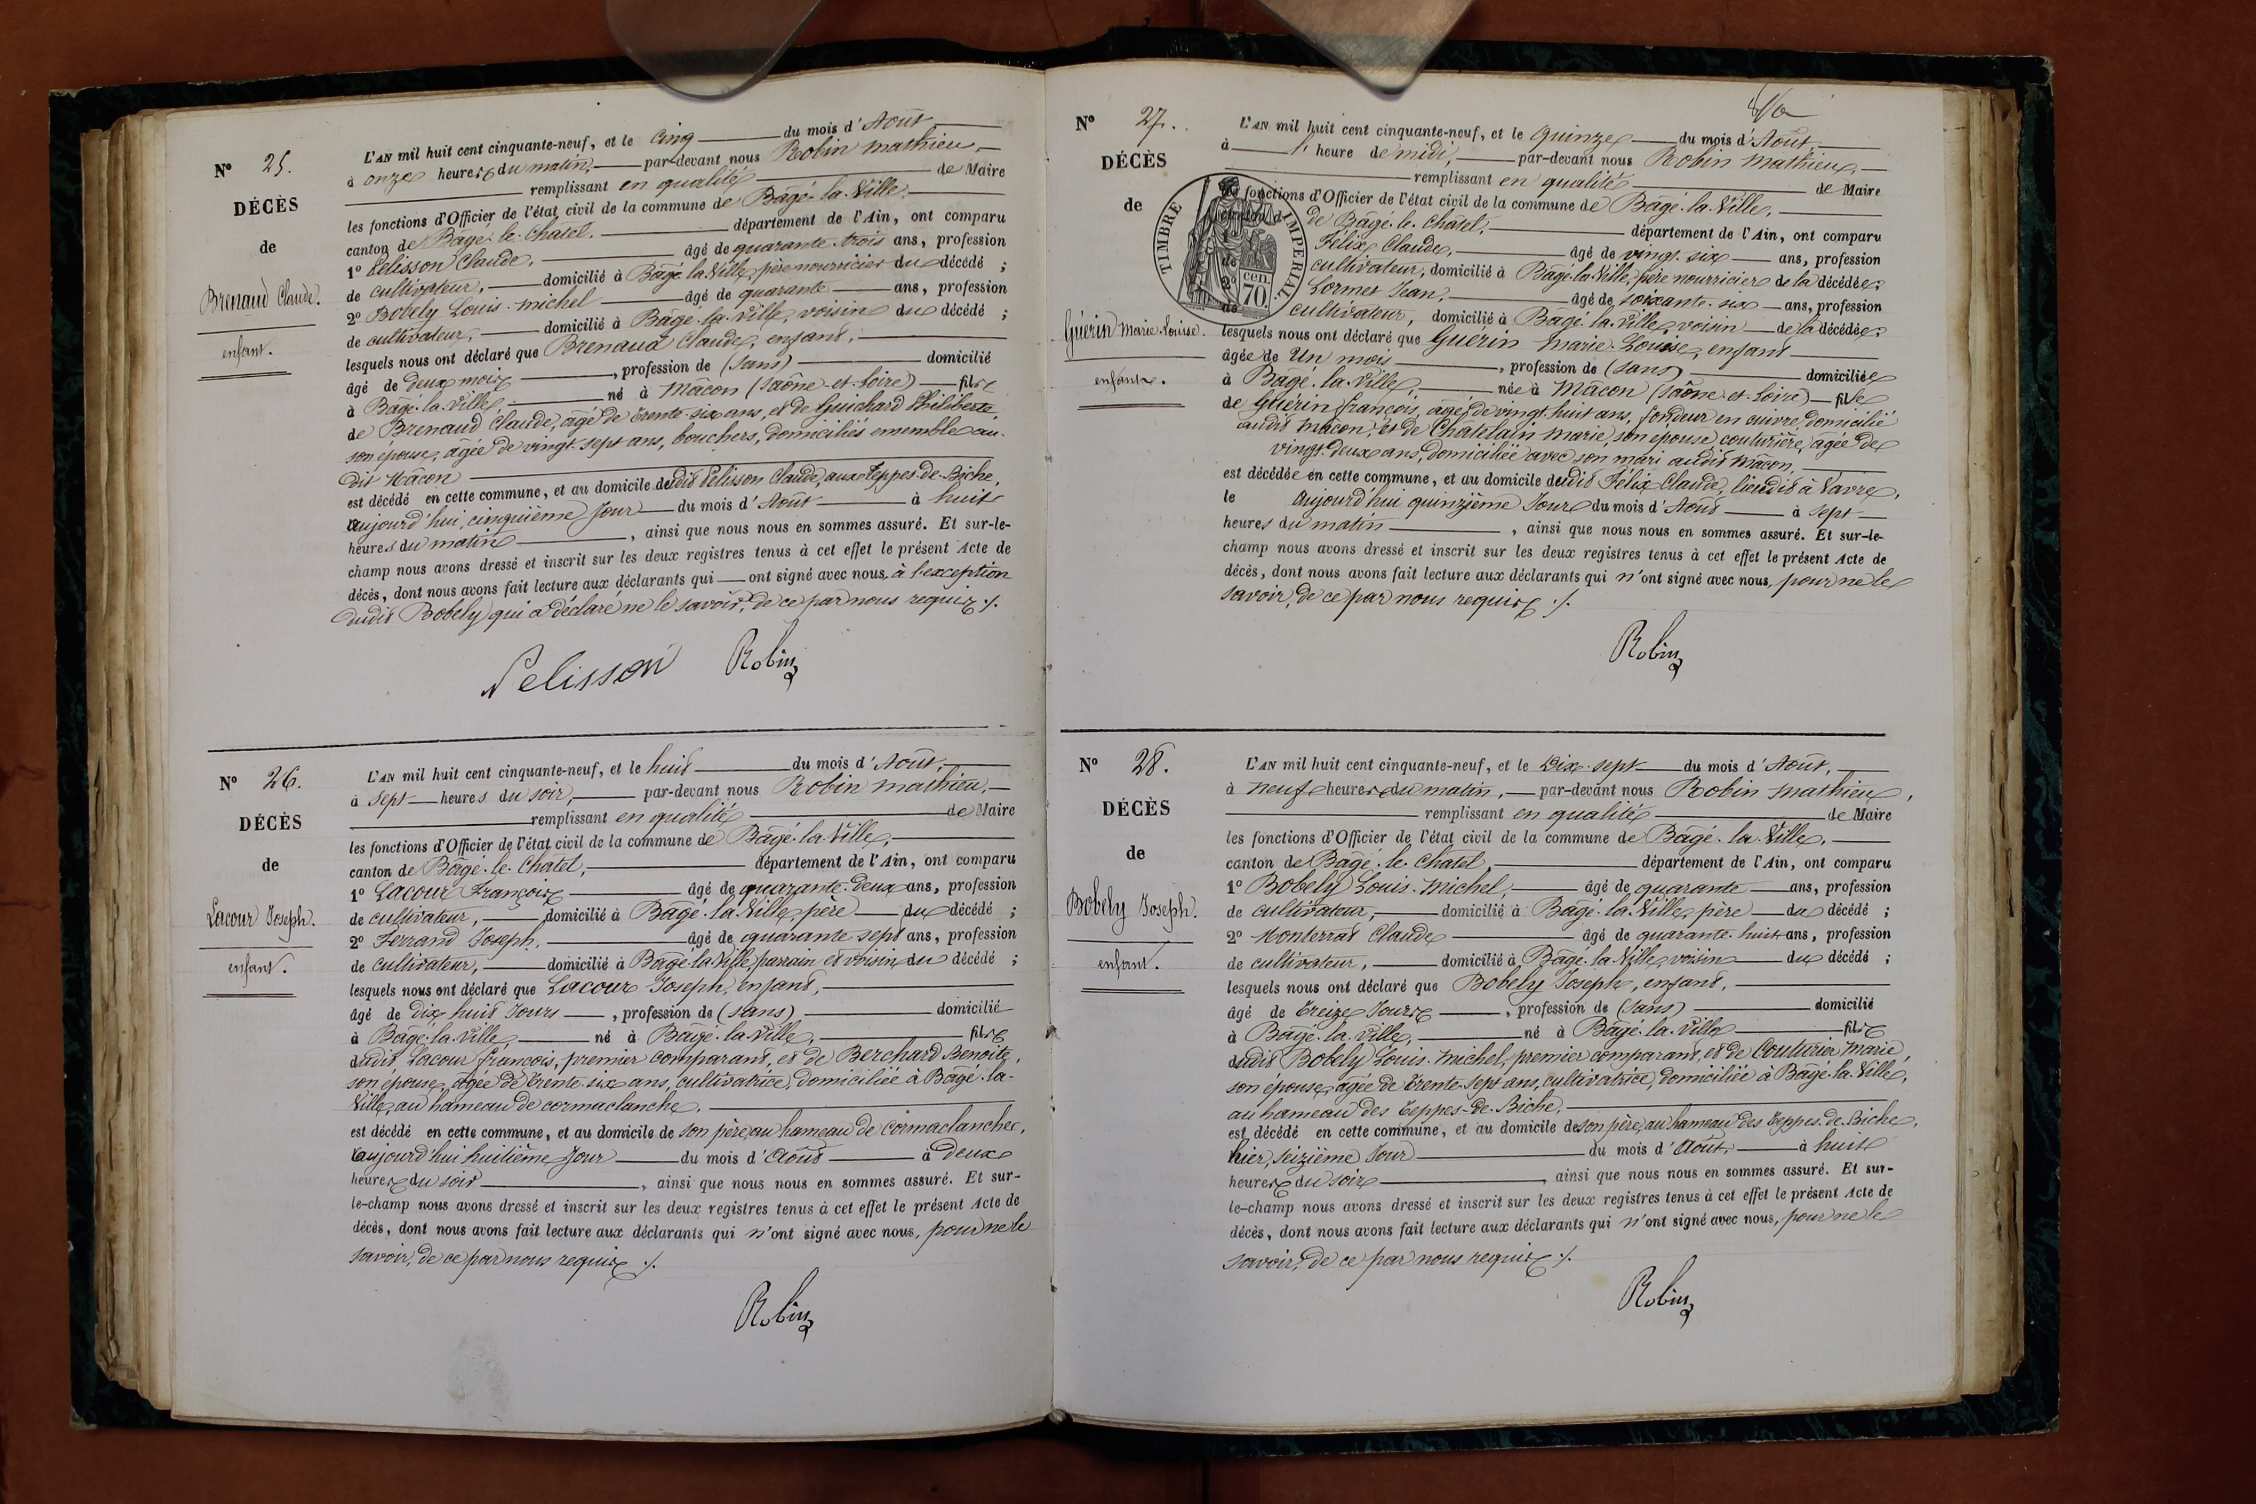 Nº 25.
DÉCÈS
de
Brenaud Claude.
enfant.
L'AN mil huit cent cinquante-neuf, et le cinq du mois d'Août
à onze heures du matin, par-devant nous Robin Mathieu,
remplissant en qualité de Maire
les fonctions d'Officier de l'état civil de la commune de Bâgé-la-Ville.
canton de Bâgé-le-Chatel. département de l'Ain, ont comparu
1º Pelisson Claude, âgé de quarante-trois ans, profession
de cultivateur, domicilié à Bâgé-la-Ville, père nourricier du décédé ;
2º Bobely Louis-Michel âgé de quarante ans, profession
de cultivateur, domicilié à Bâgé-la-Ville, voisin du décédé ;
lesquels nous ont déclaré que Brenaud Claude, enfant,
âgé de deux mois, profession de (sans) domicilié
à Bâgé-la-Ville, né à Mâcon (Saône-et-Loire) fils
de Brenaud Claude, âgé de trente-six ans, et de Guichard Philiberte,
son épouse, âgée de vingt-sept ans, bouchers, domiciliés ensemble au-
dit Mâcon
est décédé en cette commune, et au domicile dudit Pelisson Claude, aux Teppes-de-Biche,
aujourd'hui, cinquième jour du mois d'Août à huit
heures du matin, ainsi que nous nous en sommes assuré. Et sur-le-
champ nous avons dressé et inscrit sur les deux registres tenus à cet effet le présent Acte de
décès, dont nous avons fait lecture aux déclarants qui ont signé avec nous, à l'exception
dudit Bobely qui a déclaré ne le savoir, de ce par nous requis ./.
Pelisson Robin
Nº 26.
DÉCÈS
de
Lacour Joseph.
enfant.
L'AN mil huit cent cinquante-neuf, et le huit du mois d'Août,
à sept heures du soir, par-devant nous Robin Mathieu,
remplissant en qualité de Maire
les fonctions d'Officier de l'état civil de la commune de Bâgé-la-Ville,
canton de Bâgé-le-Chatel, département de l'Ain, ont comparu
1º Lacour François âgé de quarante-deux ans, profession
de cultivateur, domicilié à Bâgé-la-Ville, père du décédé ;
2º Ferrand Joseph, âgé de quarante sept ans, profession
de cultivateur, domicilié à Bâgé-la-Ville, parrain et voisin du décédé ;
lesquels nous ont déclaré que Lacour Joseph, enfant,
âgé de dix huit jours, profession de (sans), domicilié
à Bâgé-la-Ville, né à Bâgé-la-Ville, fils
dudit Lacour françois, premier comparant, et de Berchard Benoite,
son épouse, âgée de trente-six ans, cultivatrice, domiciliée à Bâgé-la-
Ville, au hameau de cormaclanche,
est décédé en cette commune, et au domicile de son père, au hameau de Cormaclanche,
aujourd'hui huitième jour du mois d'Août à deux
heures du soir, ainsi que nous nous en sommes assuré. Et sur-
le-champ nous avons dressé et inscrit sur les deux registres tenus à cet effet le présent Acte de
décès, dont nous avons fait lecture aux déclarants qui n'ont signé avec nous, pour ne le
savoir, de ce par nous requis ./.
Robin
Nº 27.
DÉCÈS
de
TIMBRE IMPÉRIAL
cen. 70
Guérin Marie-Louise.
enfant.
L'AN mil huit cent cinquante-neuf, et le quinze du mois d'Août,
à l'heure de midi, par-devant nous Robin Mathieu,
remplissant en qualité de Maire
les fonctions d'Officier de l'état civil de la commune de Bâgé-la-Ville,
canton de de Bâgé-le-Châtel, département de l'Ain, ont comparu
Félix Claude, âgé de vingt-six ans, profession
de cultivateur, domicilié à Bâgé-la-Ville, père nourricier de la décédée ;
2º Lormet Jean, âgé de soixante-six ans, profession
de cultivateur, domicilié à Bâgé-la-Ville, voisin de la décédée ;
lesquels nous ont déclaré que Guérin Marie-Louise, enfant
âgée de Un mois, profession de (sans) domiciliée
à Bâgé-la-Ville, née à Mâcon (Saône-et-Loire) fille
de Guérin françois, âgé de vingt huit ans, fondeur en cuivre, domicilié
audit Mâcon, et de Châtelain Marie, son épouse, couturière, âgée de
vingt-deux ans, domiciliée avec son mari audit Mâcon,
est décédée en cette commune, et au domicile dudit Félix Claude, lieudit à Vavre,
le aujourd'hui quinzième jour du mois d'Août à sept
heures du matin, ainsi que nous nous en sommes assuré. Et sur-le-
champ nous avons dressé et inscrit sur les deux registres tenus à cet effet le présent Acte de
décès, dont nous avons fait lecture aux déclarants qui n'ont signé avec nous, pour ne le
savoir, de ce par nous requis ./.
Robin
Nº 28.
DÉCÈS
de
Bobely Joseph.
enfant.
L'AN mil huit cent cinquante-neuf, et le Dix-sept du mois d'Août,
à neuf heures du matin, par-devant nous Robin Mathieu,
remplissant en qualité de Maire
les fonctions d'Officier de l'état civil de la commune de Bâgé-la-Ville,
canton de Bâgé-le-Chatel, département de l'Ain, ont comparu
1º Bobely Louis-Michel, âgé de quarante ans, profession
de cultivateur, domicilié à Bâgé-la-Ville, père du décédé ;
2º Monterrat Claude âgé de quarante-huit ans, profession
de cultivateur, domicilié à Bâgé-la-Ville, voisin du décédé ;
lesquels nous ont déclaré que Bobely Joseph, enfant,
âgé de treize jours, profession de (sans) domicilié
à Bâgé-la-Ville, né à Bâgé-la-Ville fils
dudit Bobely Louis-Michel, premier comparant, et de Couturier Marie,
son épouse, âgée de trente-sept ans, cultivatrice, domiciliée à Bâgé-la-Ville,
au hameau des Teppes-de-Biche,
est décédé en cette commune, et au domicile de son père, au hameau des Teppes-de-Biche,
hier, seizième jour du mois d'Août à huit
heures du soir, ainsi que nous nous en sommes assuré. Et sur-
le-champ nous avons dressé et inscrit sur les deux registres tenus à cet effet le présent Acte de
décès, dont nous avons fait lecture aux déclarants qui n'ont signé avec nous, pour ne le
savoir, de ce par nous requis ./.
Robin